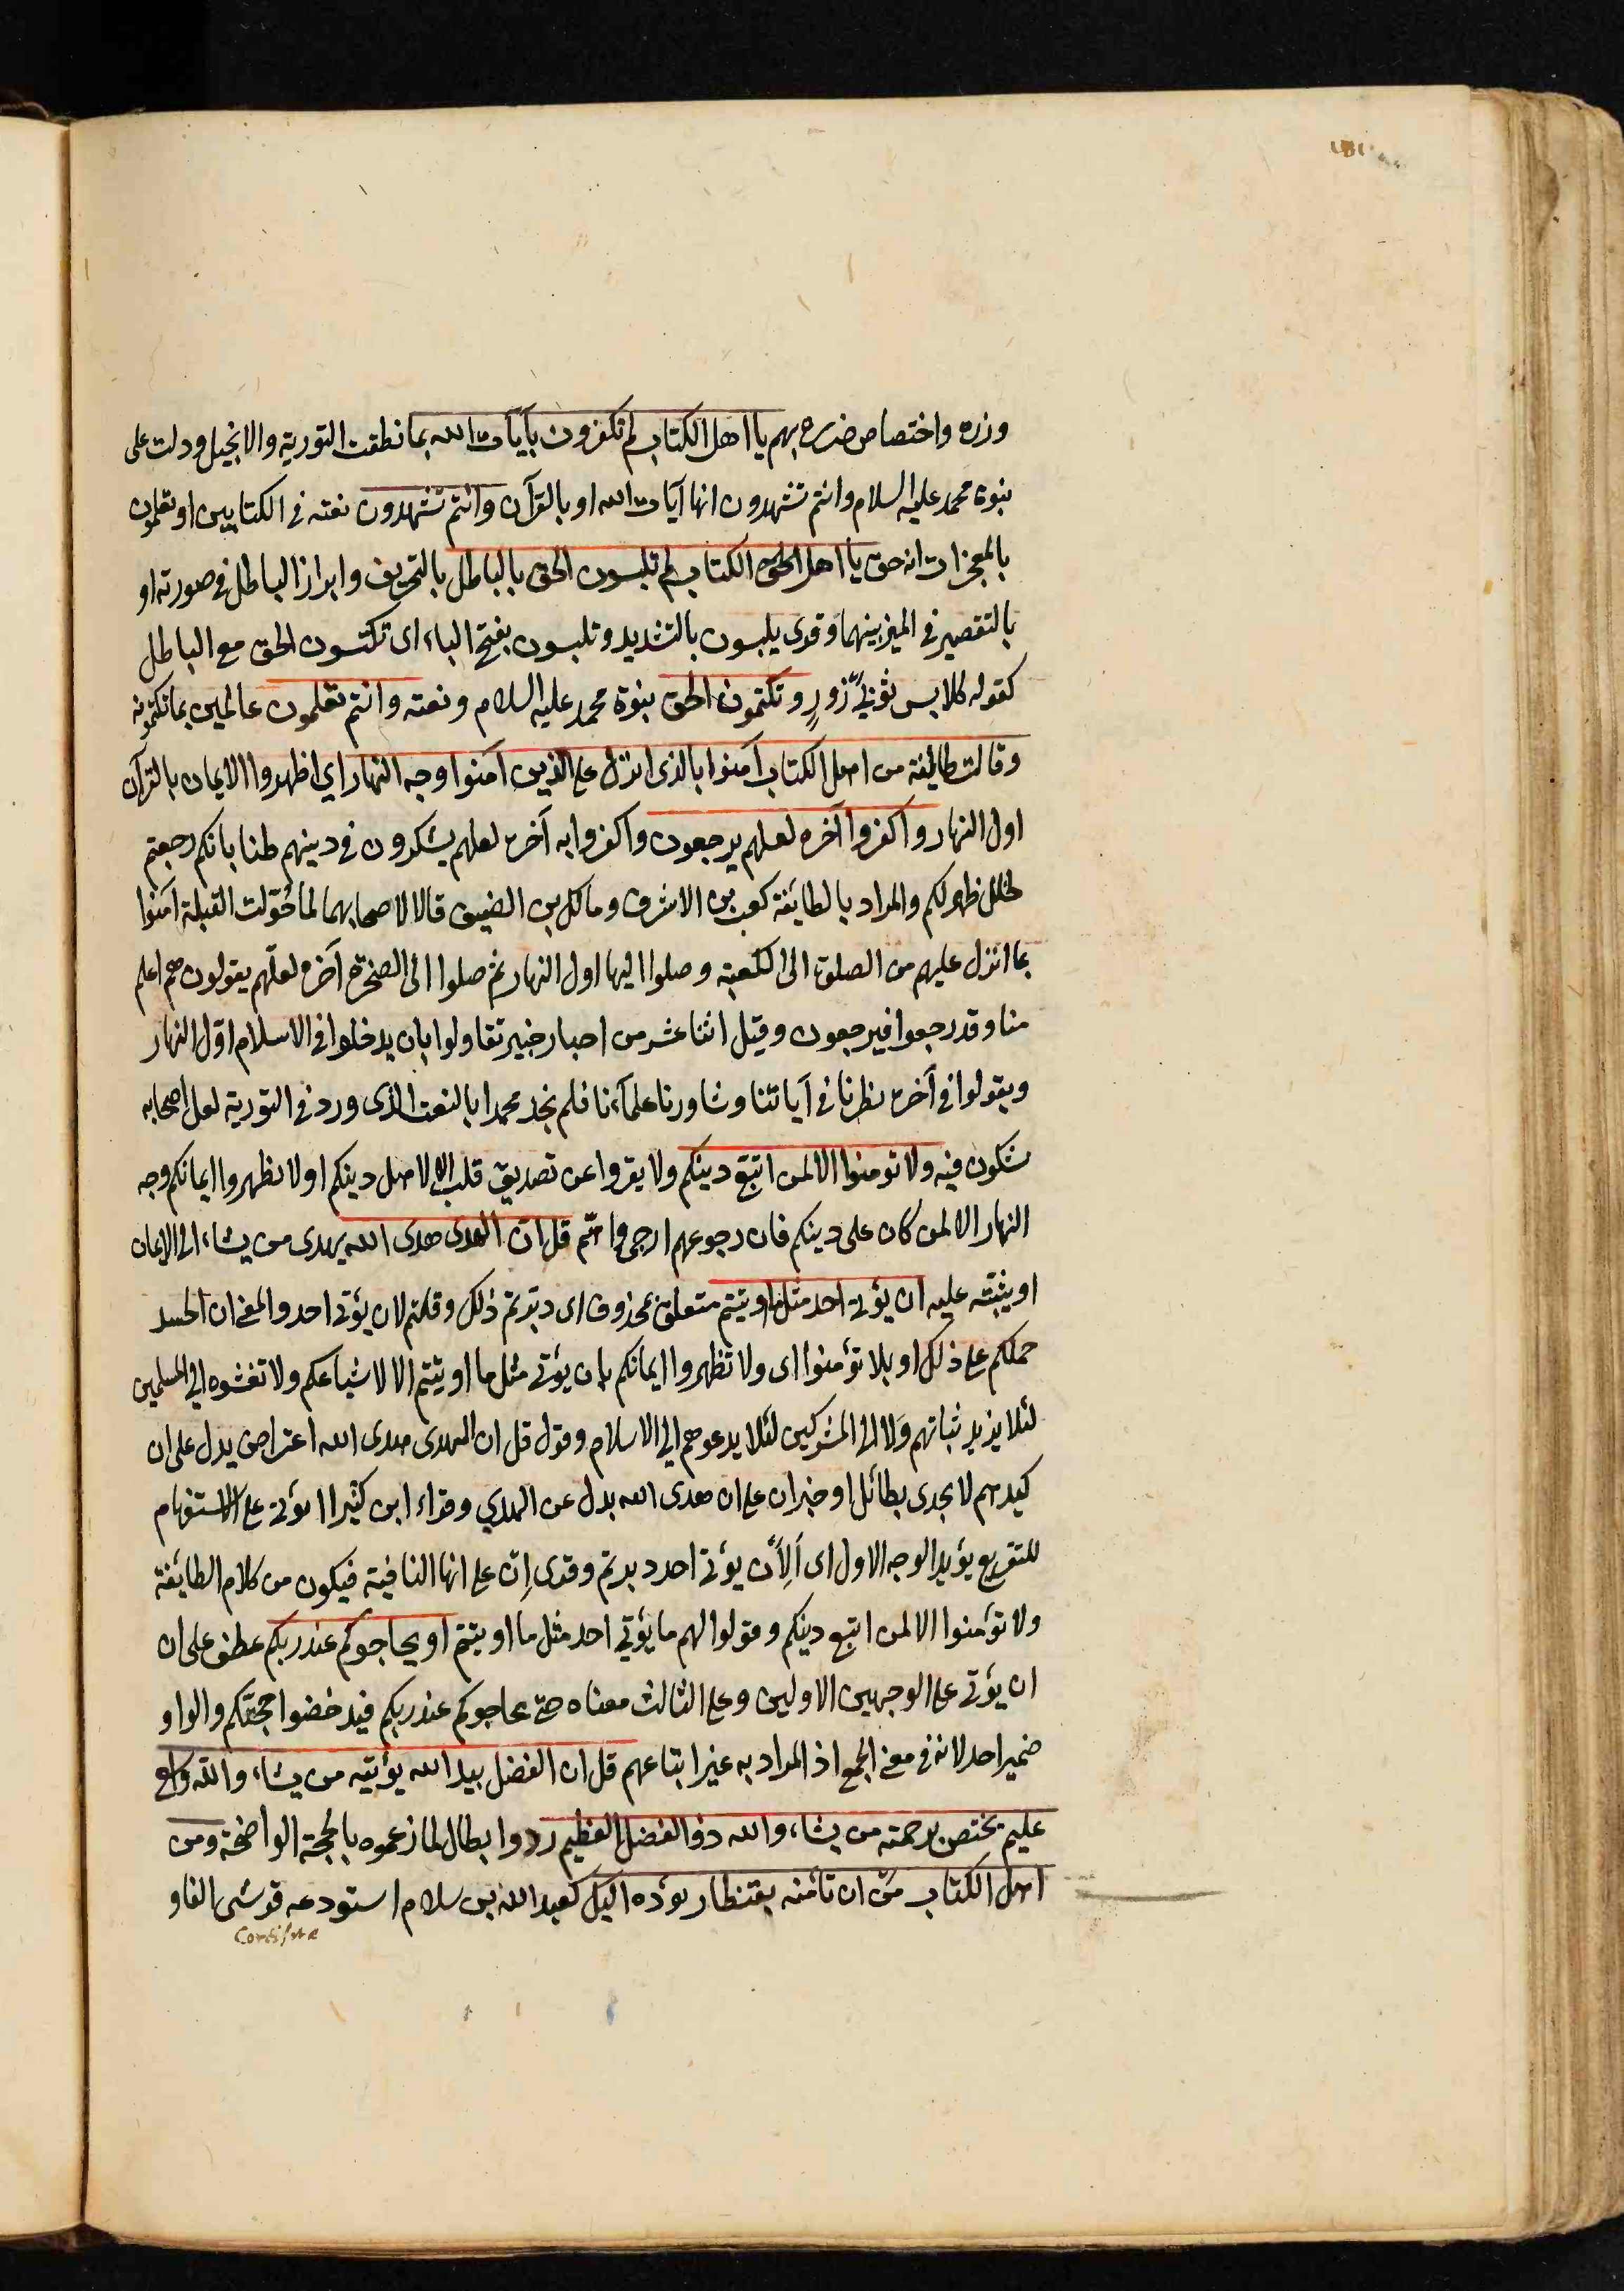 وزره واختصاص ضرره بهم يا اهل الكتاب لم تكفرون بآيات الله بما نطقت التورية والانجيل ودلت على
بنوة محمد عليه السلام وانتم تشهدون انها آيات الله او بالقرآن وانتم تشهدون نعته في الكتابين او تعلمون
بالمعجزات انه حق يا اهل الحق الكتاب لم تلبسون الحق بالباطل بالتحريف وابراز الباطل في صورته او
بالتقصير في الميز بينهما وقرى يلبسون بالتشديد وتلبسون بفتح الباء اى تكتسون الحق مع الباطل
كقوله كلابس ثوبيْ زورٍ وتكتمون الحق بنوة محمد عليه السلام ونعته وانتم تعلمون عالمين بما تكتمونه
وقالت طايفة من اهل الكتاب آمنوا بالذى انزل على الذين آمنوا وجه النهار اي اظهروا الايمان بالقرآن
اول النهار واكفروا آخره لعلهم يرجعون واكفروا به آخره لعلهم يشكون في دينهم ظنا بانكم رجعتم
لخلل ظهر لكم والمراد بالطائفة كعب بن الاشرف ومالك بن الضيف قالا لاصحابهما لما حُوّلت القبلة امنوا
بما انزل عليهم من الصلوة الى الكعبة وصلوا اليها اول النهار ثم صلوا الى الصخرة آخره لعلّهم يقولون هم اعلم
منا وقد رجعوا فيرجعون وقيل اثنا عشر من احبار خيبر تقاولوا بان يدخلوا في الاسلام اوّل النهار
ويقولوا في آخره نظرنا في آياتنا وشاورنا علمآءنا فلم نجد محمدا بالنعت الذى ورد في التورية لعل اصحابه
يشكون فيه ولا تومنوا الا لمن اتبع دينكم ولا يقروا عن تصديق قلب الا لاهل دينكم او لا تظهروا ايمانكم وجه
النهار الا لمن كان على دينكم فان رجوعهم ارجى واهم قل ان الهدى هدى الله يهدى من يشاء الى الايمان
او يثبته عليه ان يؤتى احد مثل ما اوتيتم متعلق بمحذوف اى دبرتم ذلك وقلتم لان يؤتى احد والمعنى ان الحسد
حملكم على ذلك او بلا تؤمنوا اى ولا تظهروا ايمانكم بان يؤتى مثل ما اوتيتم الا لاشياعكم ولا تفشوه الى المسلمين
لئلا يزيد ثباتهم ولا الى المشركين لئلا يدعوهم الى الاسلام وقوله قل ان الهدى هدى الله اعتراض يدل على ان
كيدهم لا يجدى بطائل او خبر ان على ان هدى الله بدل عن الهدي وقراء ابن كثير اان يؤتى على الاستفهام
للتقريع يؤيد الوجه الاول اى أَلِأَن يؤتى احد دبرتم وقرى اِن على انها النافية فيكون من كلام الطايفة
ولا تؤمنوا الا لمن اتبع دينكم وقولوا لهم ما يؤتي احد مثل ما اوتيتم او يحاجوكم عند ربكم عطف على ان
ان يؤتى على الوجهين الاولين وعلى الثالث معناه حتى يحاجوكم عند ربكم فيدحضوا حجتكم والواو
ضمير احد لانه في معنى الجمع اذ المراد به غير اتباعهم قل ان الفضل بيد الله يؤتيه من يشاء والله واسع
عليم يختص برحمته من يشاء والله ذو الفضل العظيم رد وابطال لما زعموه بالحجة الواضحة ومن
اهل الكتاب من ان تأمنه بقنطار يؤده اليك كعبد الله بن سلام استودعه قرشى الفا و